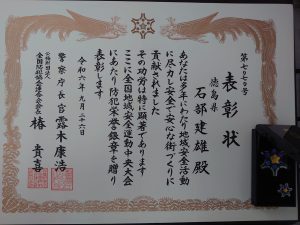 表彰状
徳島県
石部建雄殿
あなたは多年にわたり地域安全活動
に尽力し安全で安心な街づくりに
貢献されました
その功労は特に顕著であります
ここに全国地域安全運動中央大会
にあたり防犯栄誉銀章を贈り
表彰します
令和六年九月二十六日
警察庁長官 露木康浩
公益財団法人
全国防犯協会連合会会長
椿 貴喜